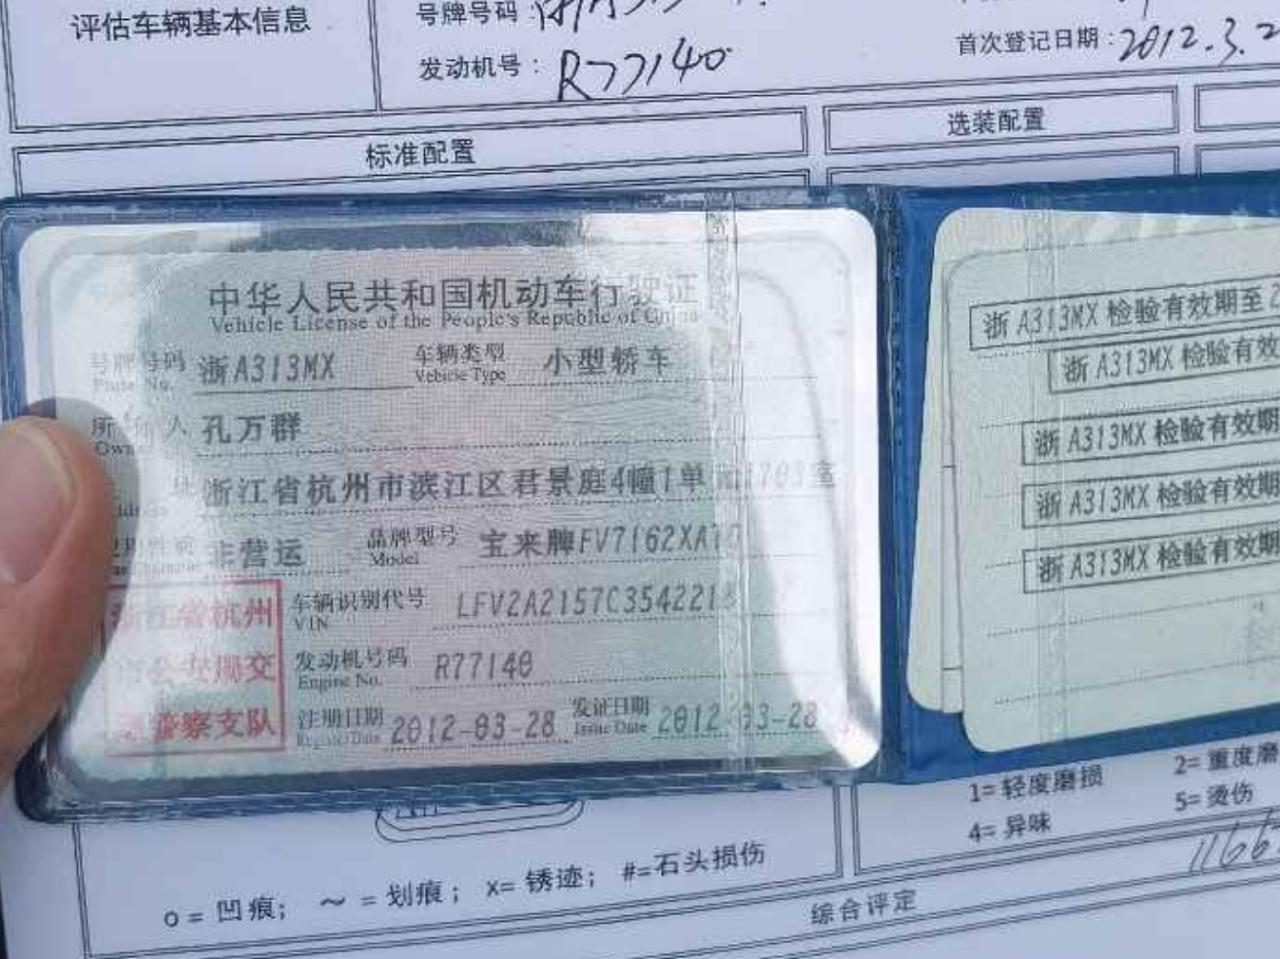 评估车辆基本信息
号牌号码:
发动机号: R77140
首次登记日期: 2012.3.2
标准配置
选装配置
中华人民共和国机动车行驶证
Vehicle License of the People's Republic of China
号牌号码 浙A313MX 车辆类型 小型轿车
Plate No. Vehicle Type
所有人 孔万群
址 浙江省杭州市滨江区君景庭4幢1单元1703室
非营运 品牌型号 宝来牌FV7162XATG
Model
浙江省杭州
车辆识别代号 LFV2A2157C3542218
VIN
市公安局交
发动机号码 R77140
Engine No.
通警察支队
注册日期 2012-03-28 发证日期 2012-03-28
Register Date Issue Date
浙A313MX 检验有效期至2
浙A313MX 检验有效
浙A313MX 检验有效期
浙A313MX 检验有效期
浙A313MX 检验有效期
1= 轻度磨损 2= 重度磨
4= 异味 5= 烫伤
o = 凹痕; ~ = 划痕; x= 锈迹; #=石头损伤
1166
综合评定